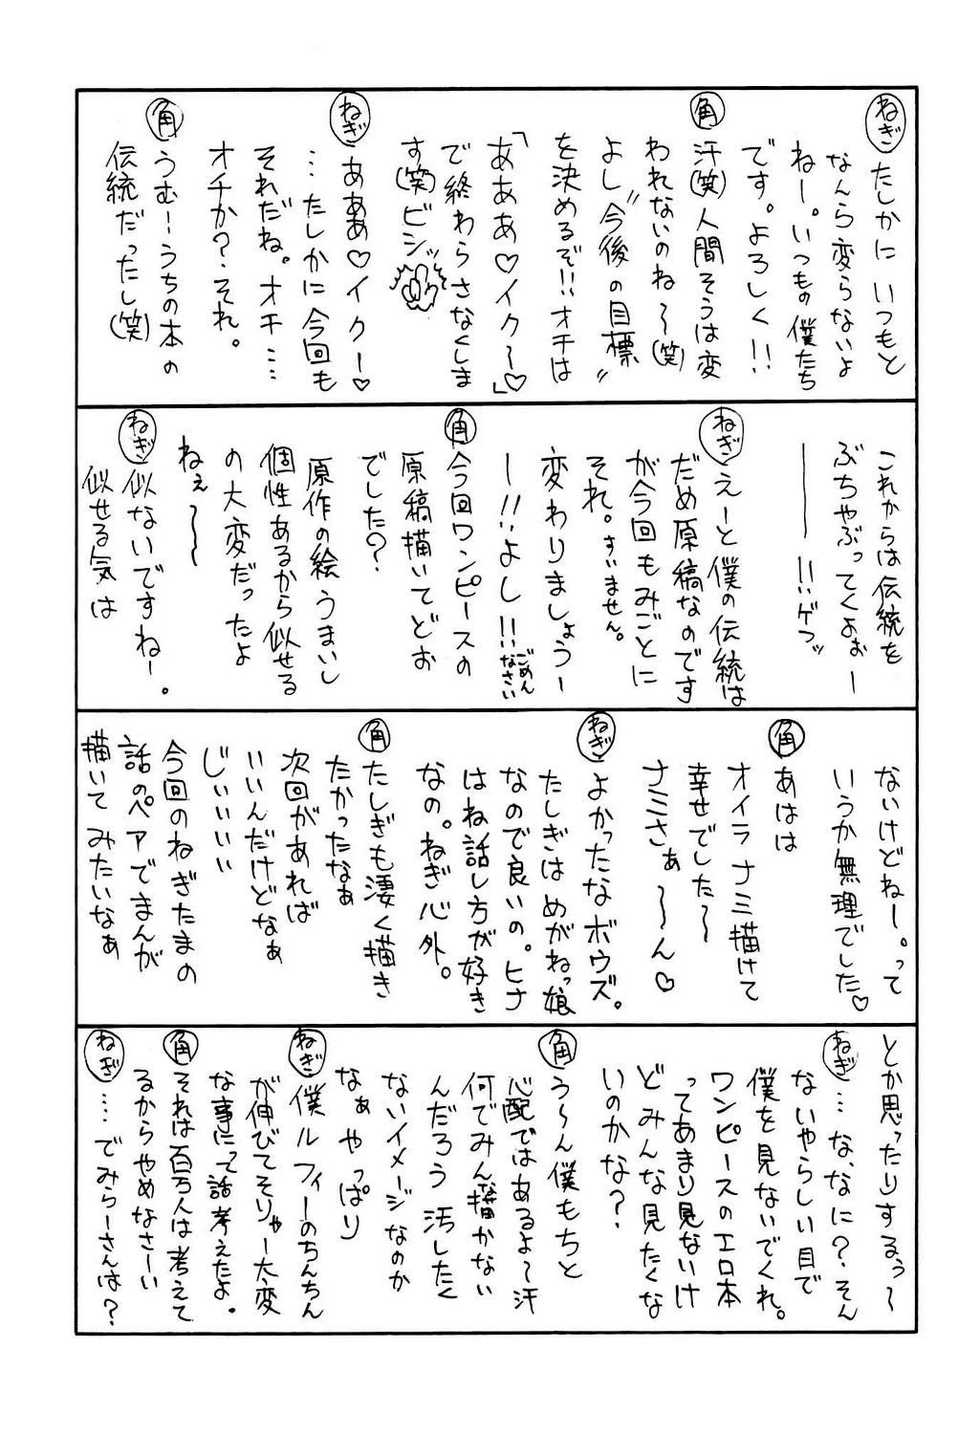 ねぎ たしかに いつもと
なんら変らないよ
ねー。いつもの僕たち
です。よろしく!!
角 汗(笑)人間そうは変
われないのね〜(笑)
よし〝今後の目標〟
を決めるぞ!!オチは
「あああ♡イク〜」♡
で終わらさなくしま
す(笑)ビシッ
ねぎ あああ♡イクー♡
…たしかに今回も
それだね。オチ…
オチか?それ。
角 うむ!うちの本の
伝統だったし(笑)
これからは伝統を
ぶちゃぶってくよぉー
―――!!ゲフッ
ねぎ えーと僕の伝統は
だめ原稿なのです
が今回もみごとに
それ。すいません。
変わりましょうー
ー!!よし!!ごめんなさい
角 今回ワンピースの
原稿描いてどお
でした?
原作の絵うまいし
個性あるから似せる
の大変だったよ
ねぇ〜〜
ねぎ 似ないですねー。
似せる気は
ないけどねー。って
いうか無理でした♡
角 あはは
オイラナミ描けて
幸せでした〜
ナミさぁ〜〜ん♡
ねぎ よかったなボウズ。
たしぎはめがねっ娘
なので良いの。ヒナ
はね話し方が好き
なの。ねぎ心外。
角 たしぎも凄く描き
たかったなぁ
次回があれば
いいんだけどなぁ
じぃいいい
今回のねぎたまの
話のペアでまんが
描いてみたいなぁ
とか思ったりするぅ〜
ねぎ …な、なに?そん
ないやらしい目で
僕を見ないでくれ。
ワンピースのエロ本
ってあまり見ないけ
どみんな見たくな
いのかな?
角 う〜ん僕もちと
心配ではあるよ〜汗
何でみんな描かない
んだろう 汚したく
ないイメージなのか
なぁ やっぱり
ねぎ 僕ルフィーのちんちん
が伸びてそりゃー大変
な事にって話考えたよ。
角 それは百万人は考えて
るからやめなさーい
ねぎ …。でみらーさんは?